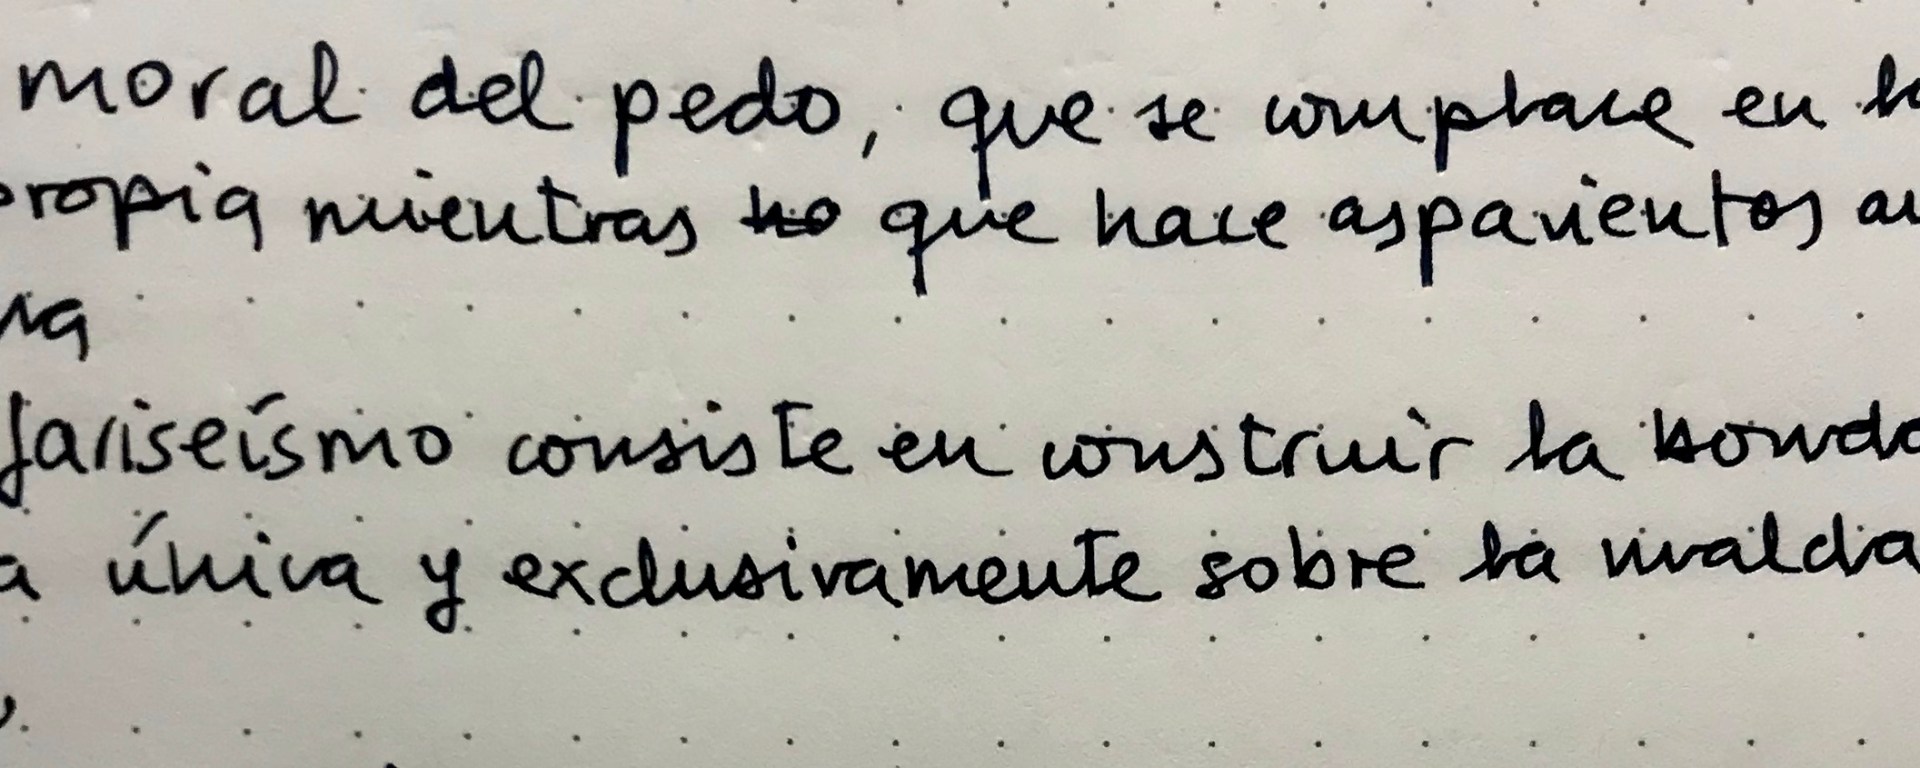 moral del pedo, que se complace en la
propia mientras no que hace aspavientos an
na
fariseísmo consiste en construir la bonda
a única y exclusivamente sobre la malda